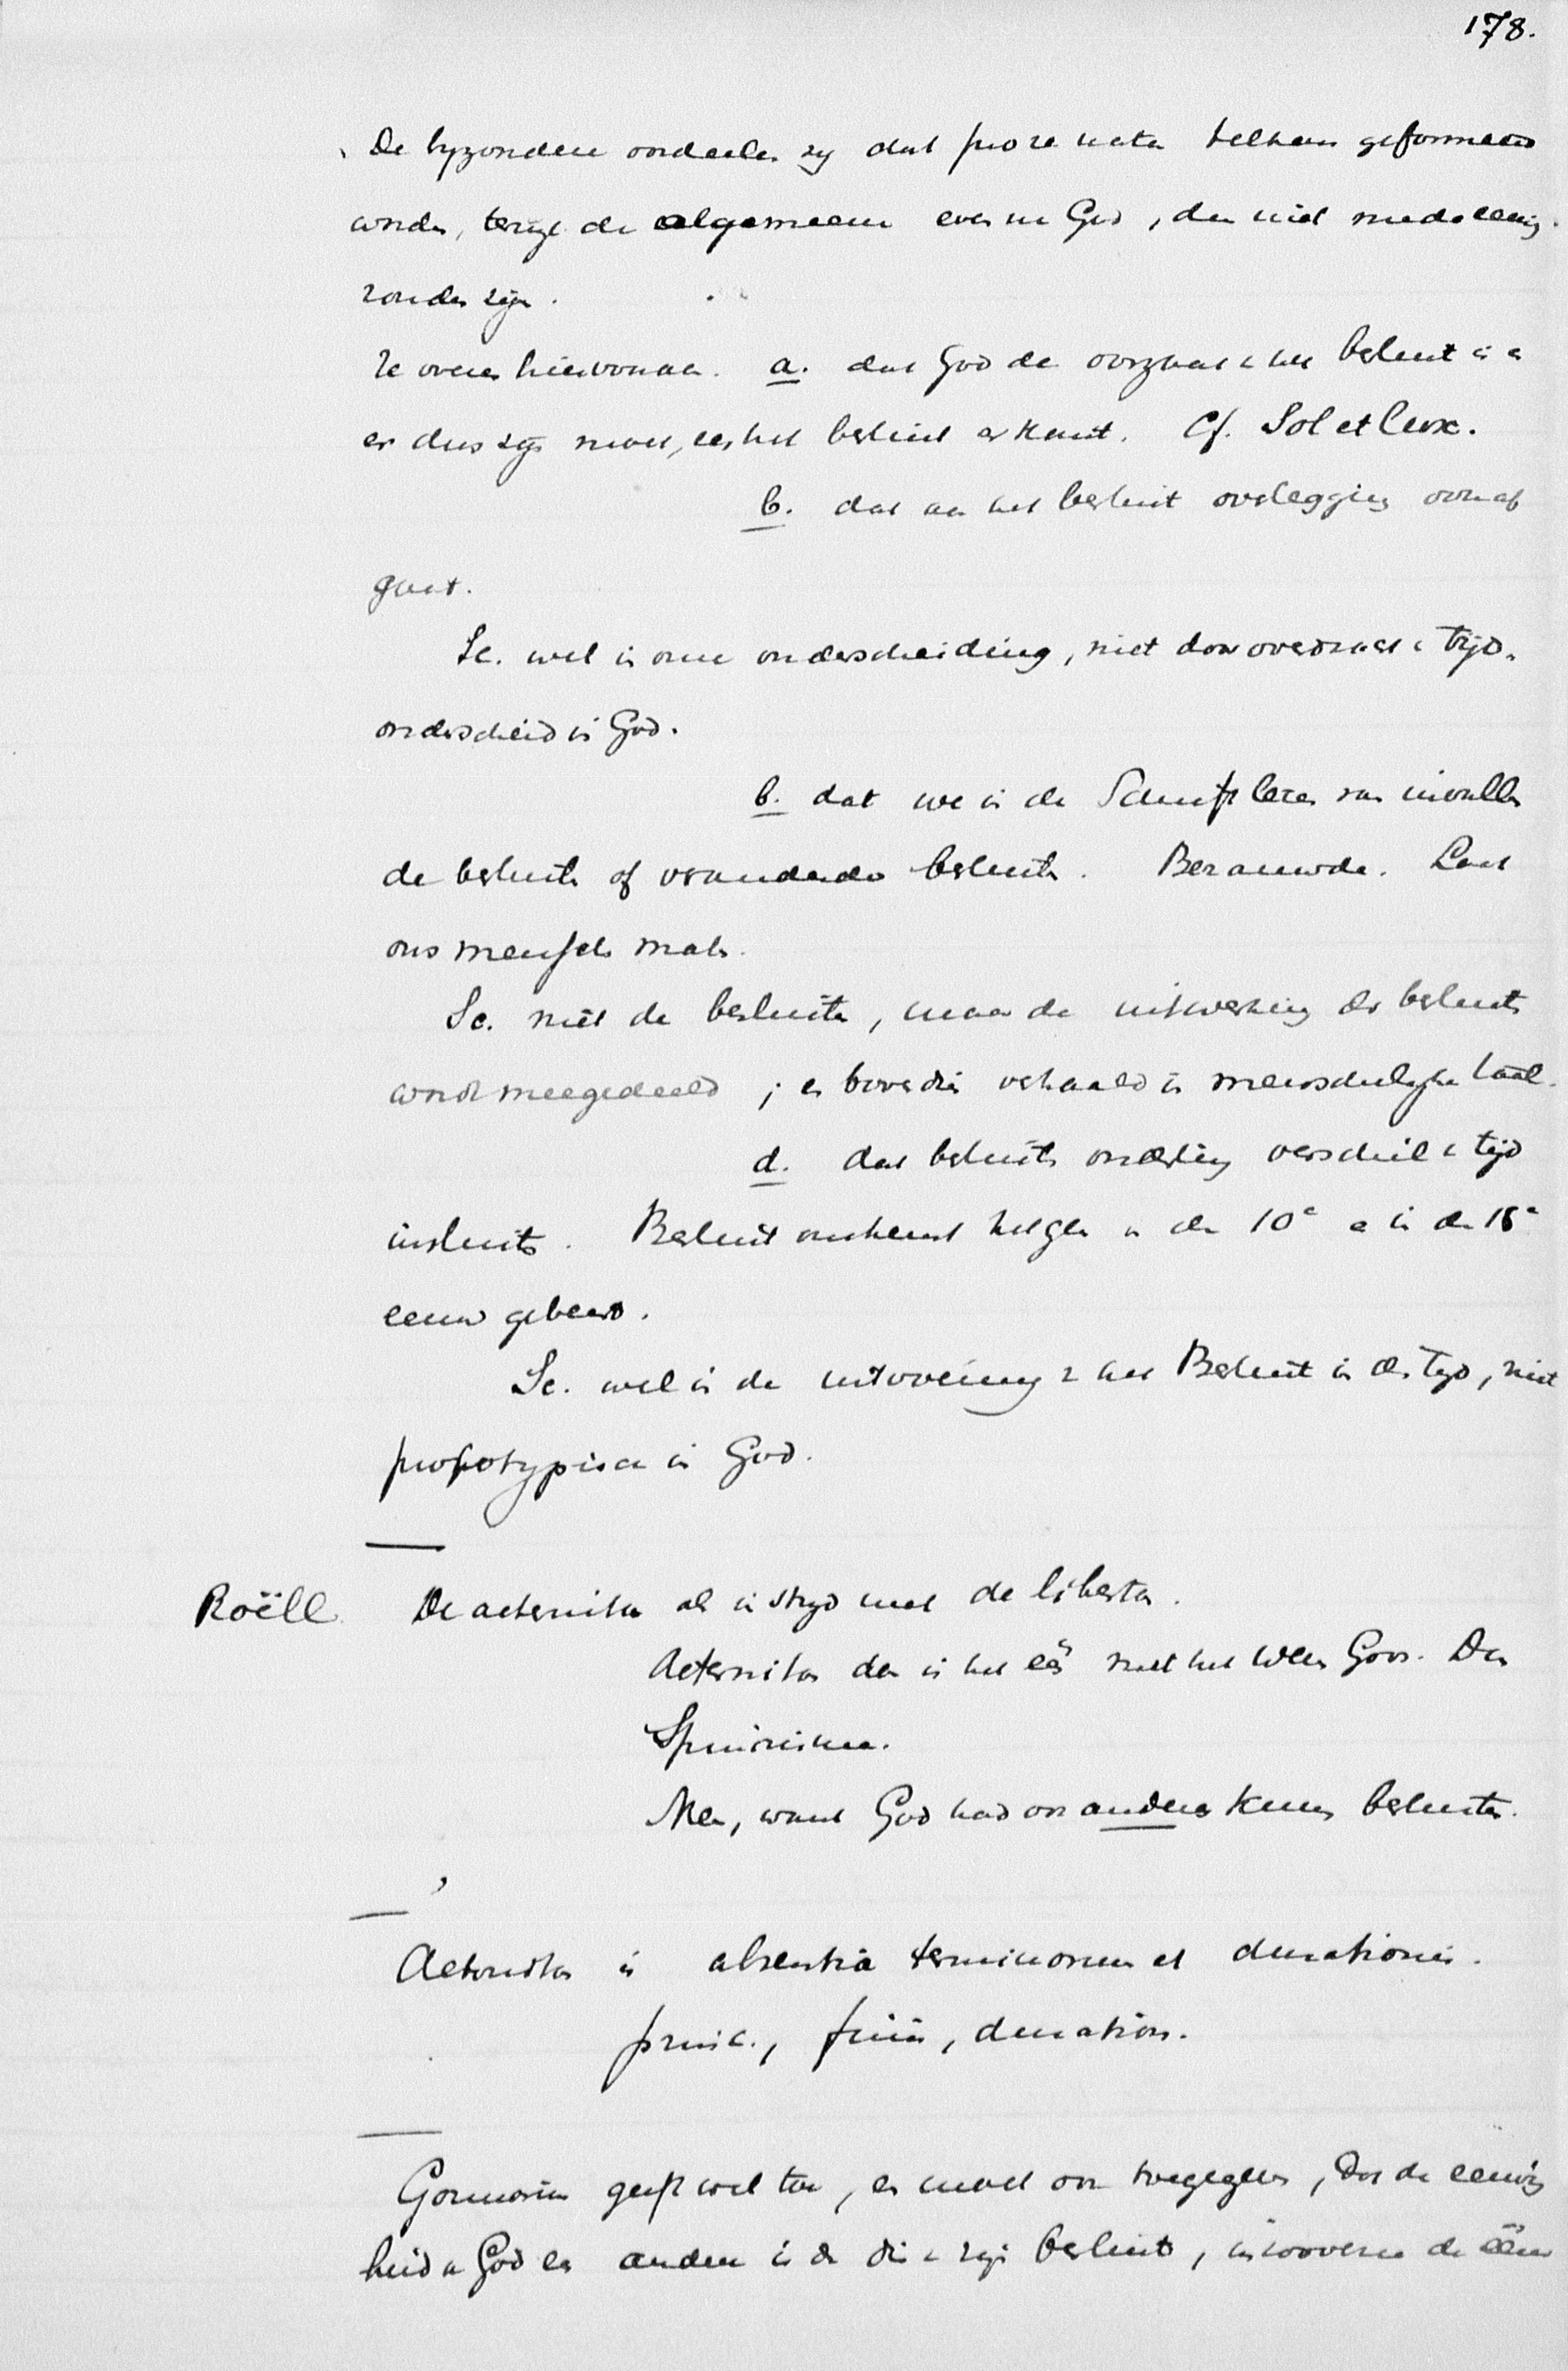 178.
De byzondere oordeelen zij dat pro re nata telkens geformeerd
worden, terwyl de algemeene even in God, den niet mede eeuwig
zouden zijn.
Ze voeren hiervoor aan. a. dat God de oorzaak v het besluit is
er dus zijn moet, eer het besluit er komt. Cf. Sol et lux.
b. dat aan het besluit overlegging vooraf
gaat.
Sc. wel in onze onderscheiding, niet door oorzaak v tijds
onderscheid in God.
b. dat we in de Schrift lezen van invallen
de besluiten of veranderde besluiten. Berouwde. Laat
ons menschen maken.
Sc. niet de besluiten, maar de uitwerking der besluiten
wordt meegedeeld ; en bovendien verhaald in menschelyke taal.
d. dat besluiten onderling verschil v tijd
insluiten. Besluit omtrent hetgeen in de 10e en in de 18e
eeuw gebeurt.
Sc. wel in de uitvoering v het Besluit in den Tyd, niet
prototypisch in God.
Roëll De aeternitas als in stryd met de libertas.
Aeternitas dan is het één met het Wezen Gods. Dan
Spinozisme.
Neen, want God had ook anders kunnen besluiten.
Aeternitas is absentia terminorum et durationis.
princ., finis, duration.
Gomarus geeft wel toe, en moet ook toegegeven, dat de eeuwig
heid in God en anders is dan die v zijn besluit, in zooverre de ééne